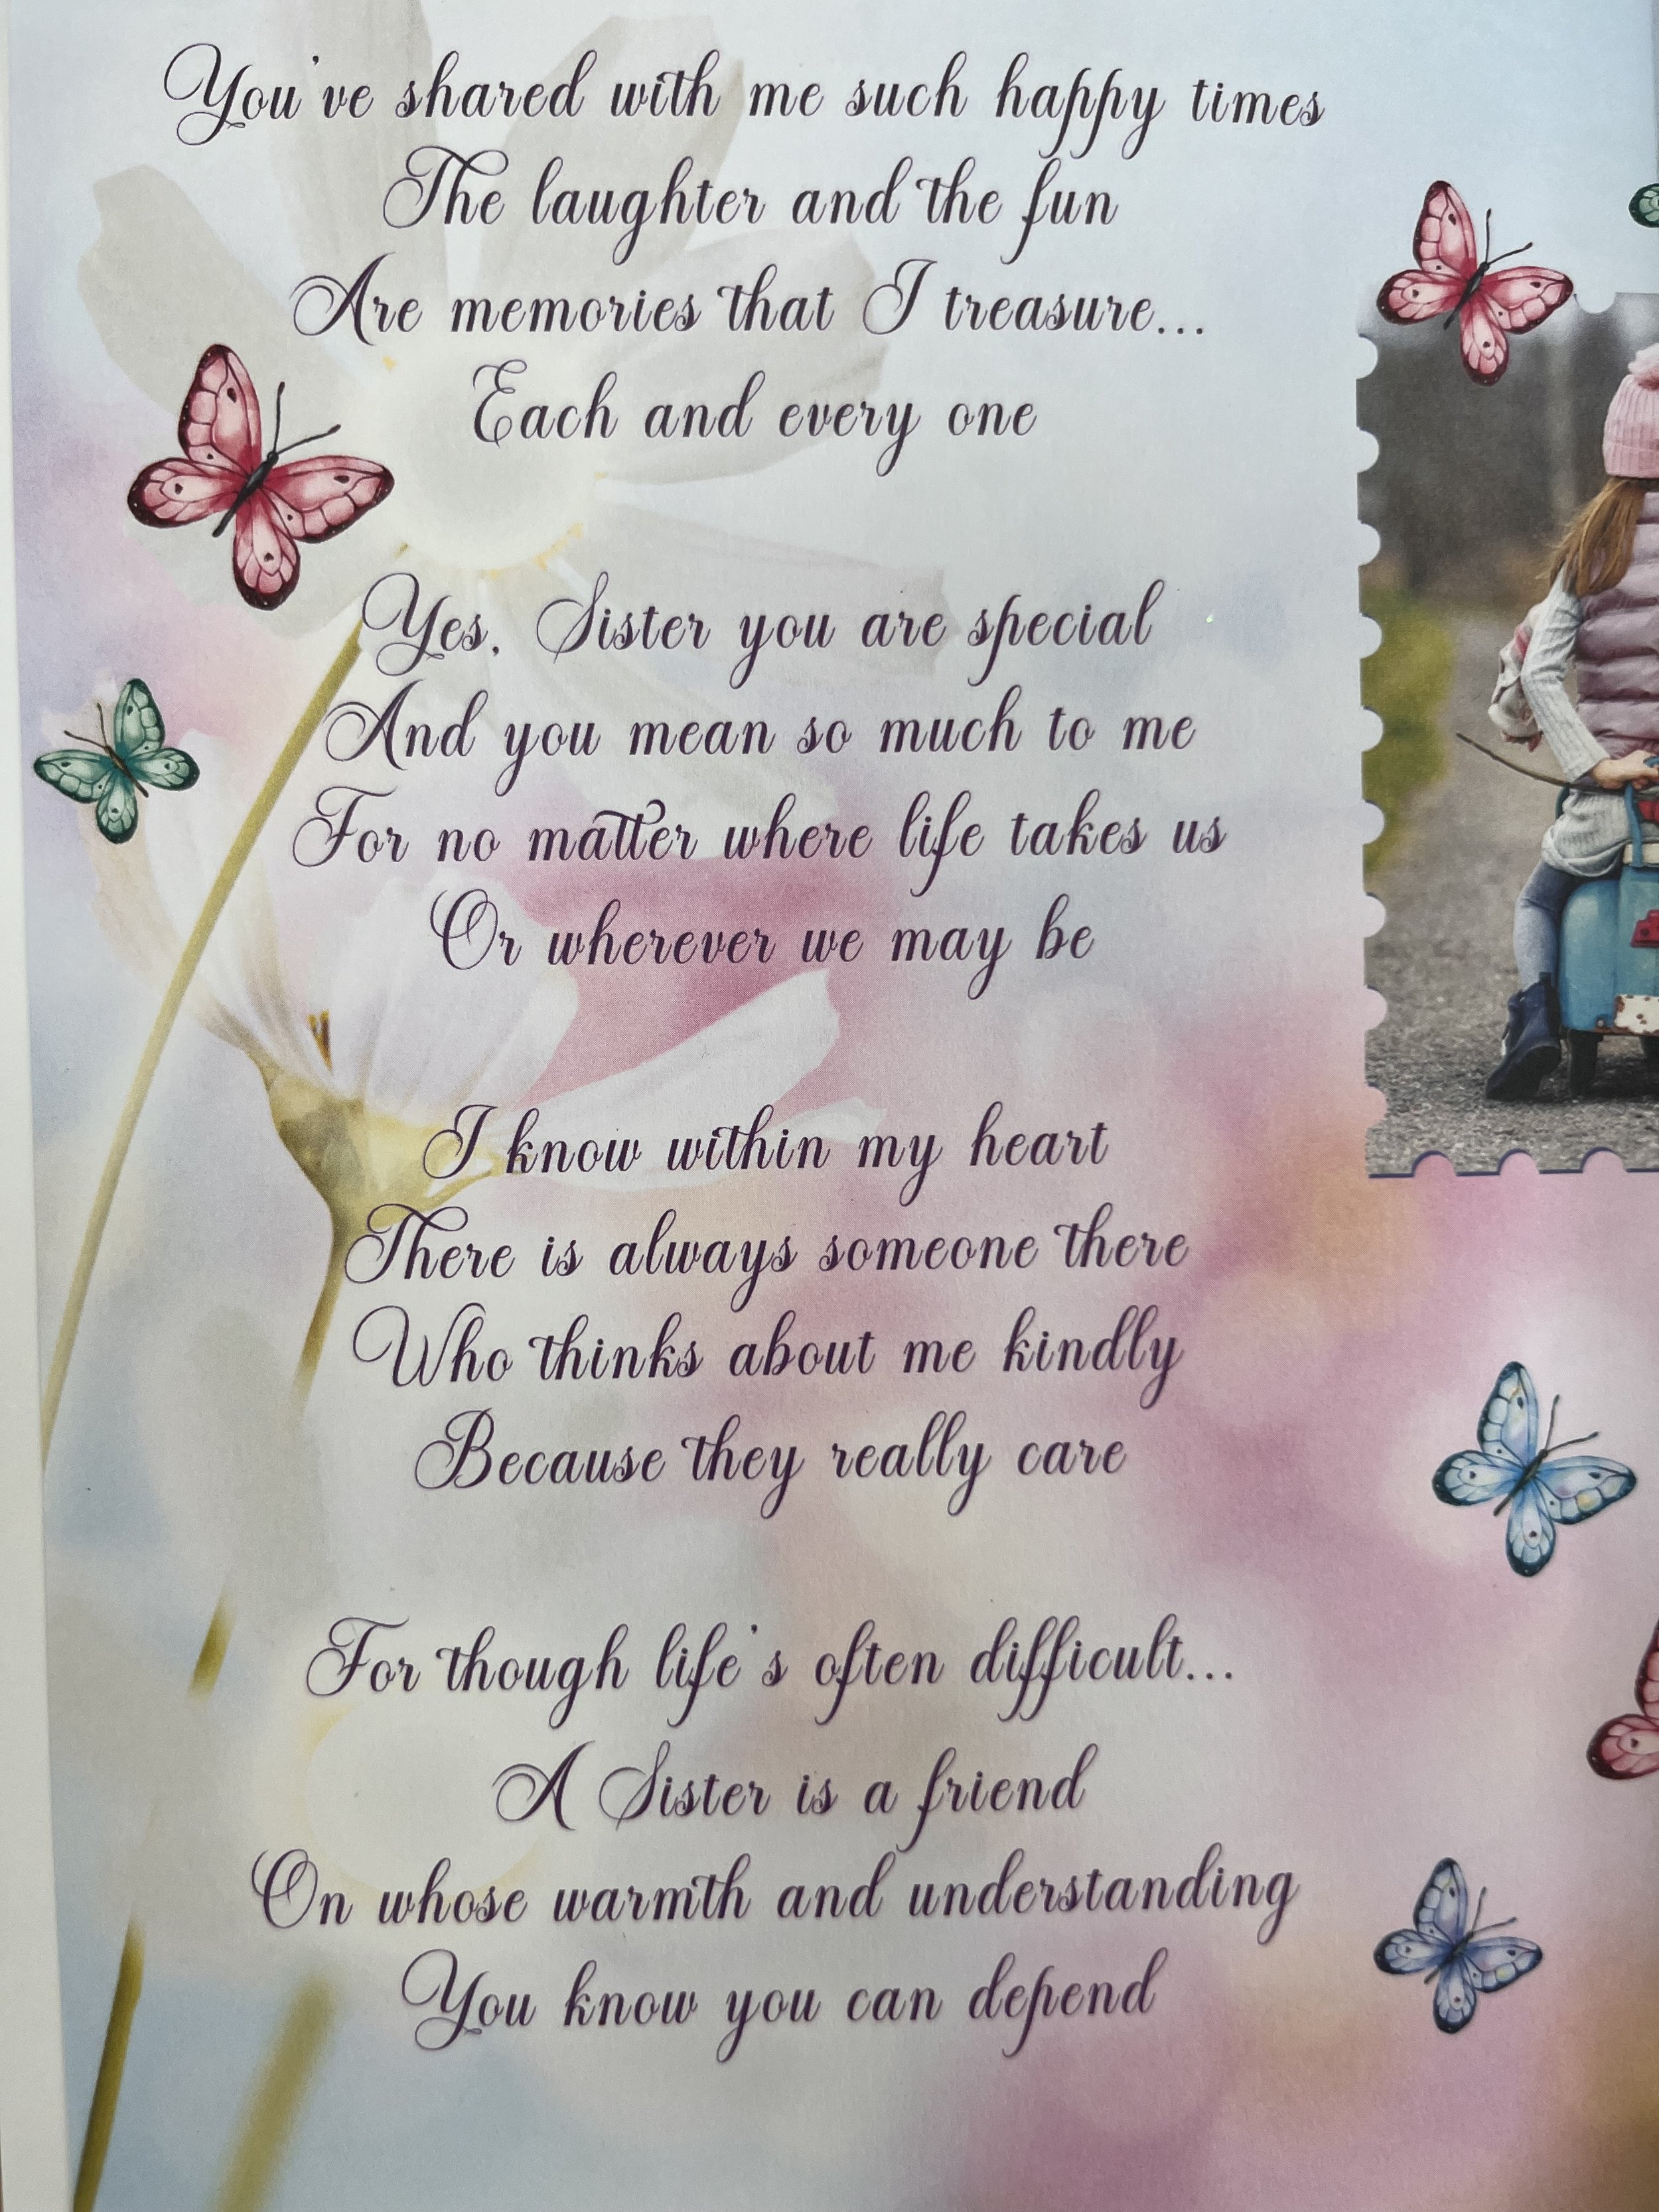 You've shared with me such happy times
The laughter and the fun
Are memories that I treasure...
Each and every one
Yes, Sister you are special
And you mean so much to me
For no matter where life takes us
Or wherever we may be
I know within my heart
There is always someone there
Who thinks about me kindly
Because they really care
For though life's often difficult...
A Sister is a friend
On whose warmth and understanding
You know you can depend